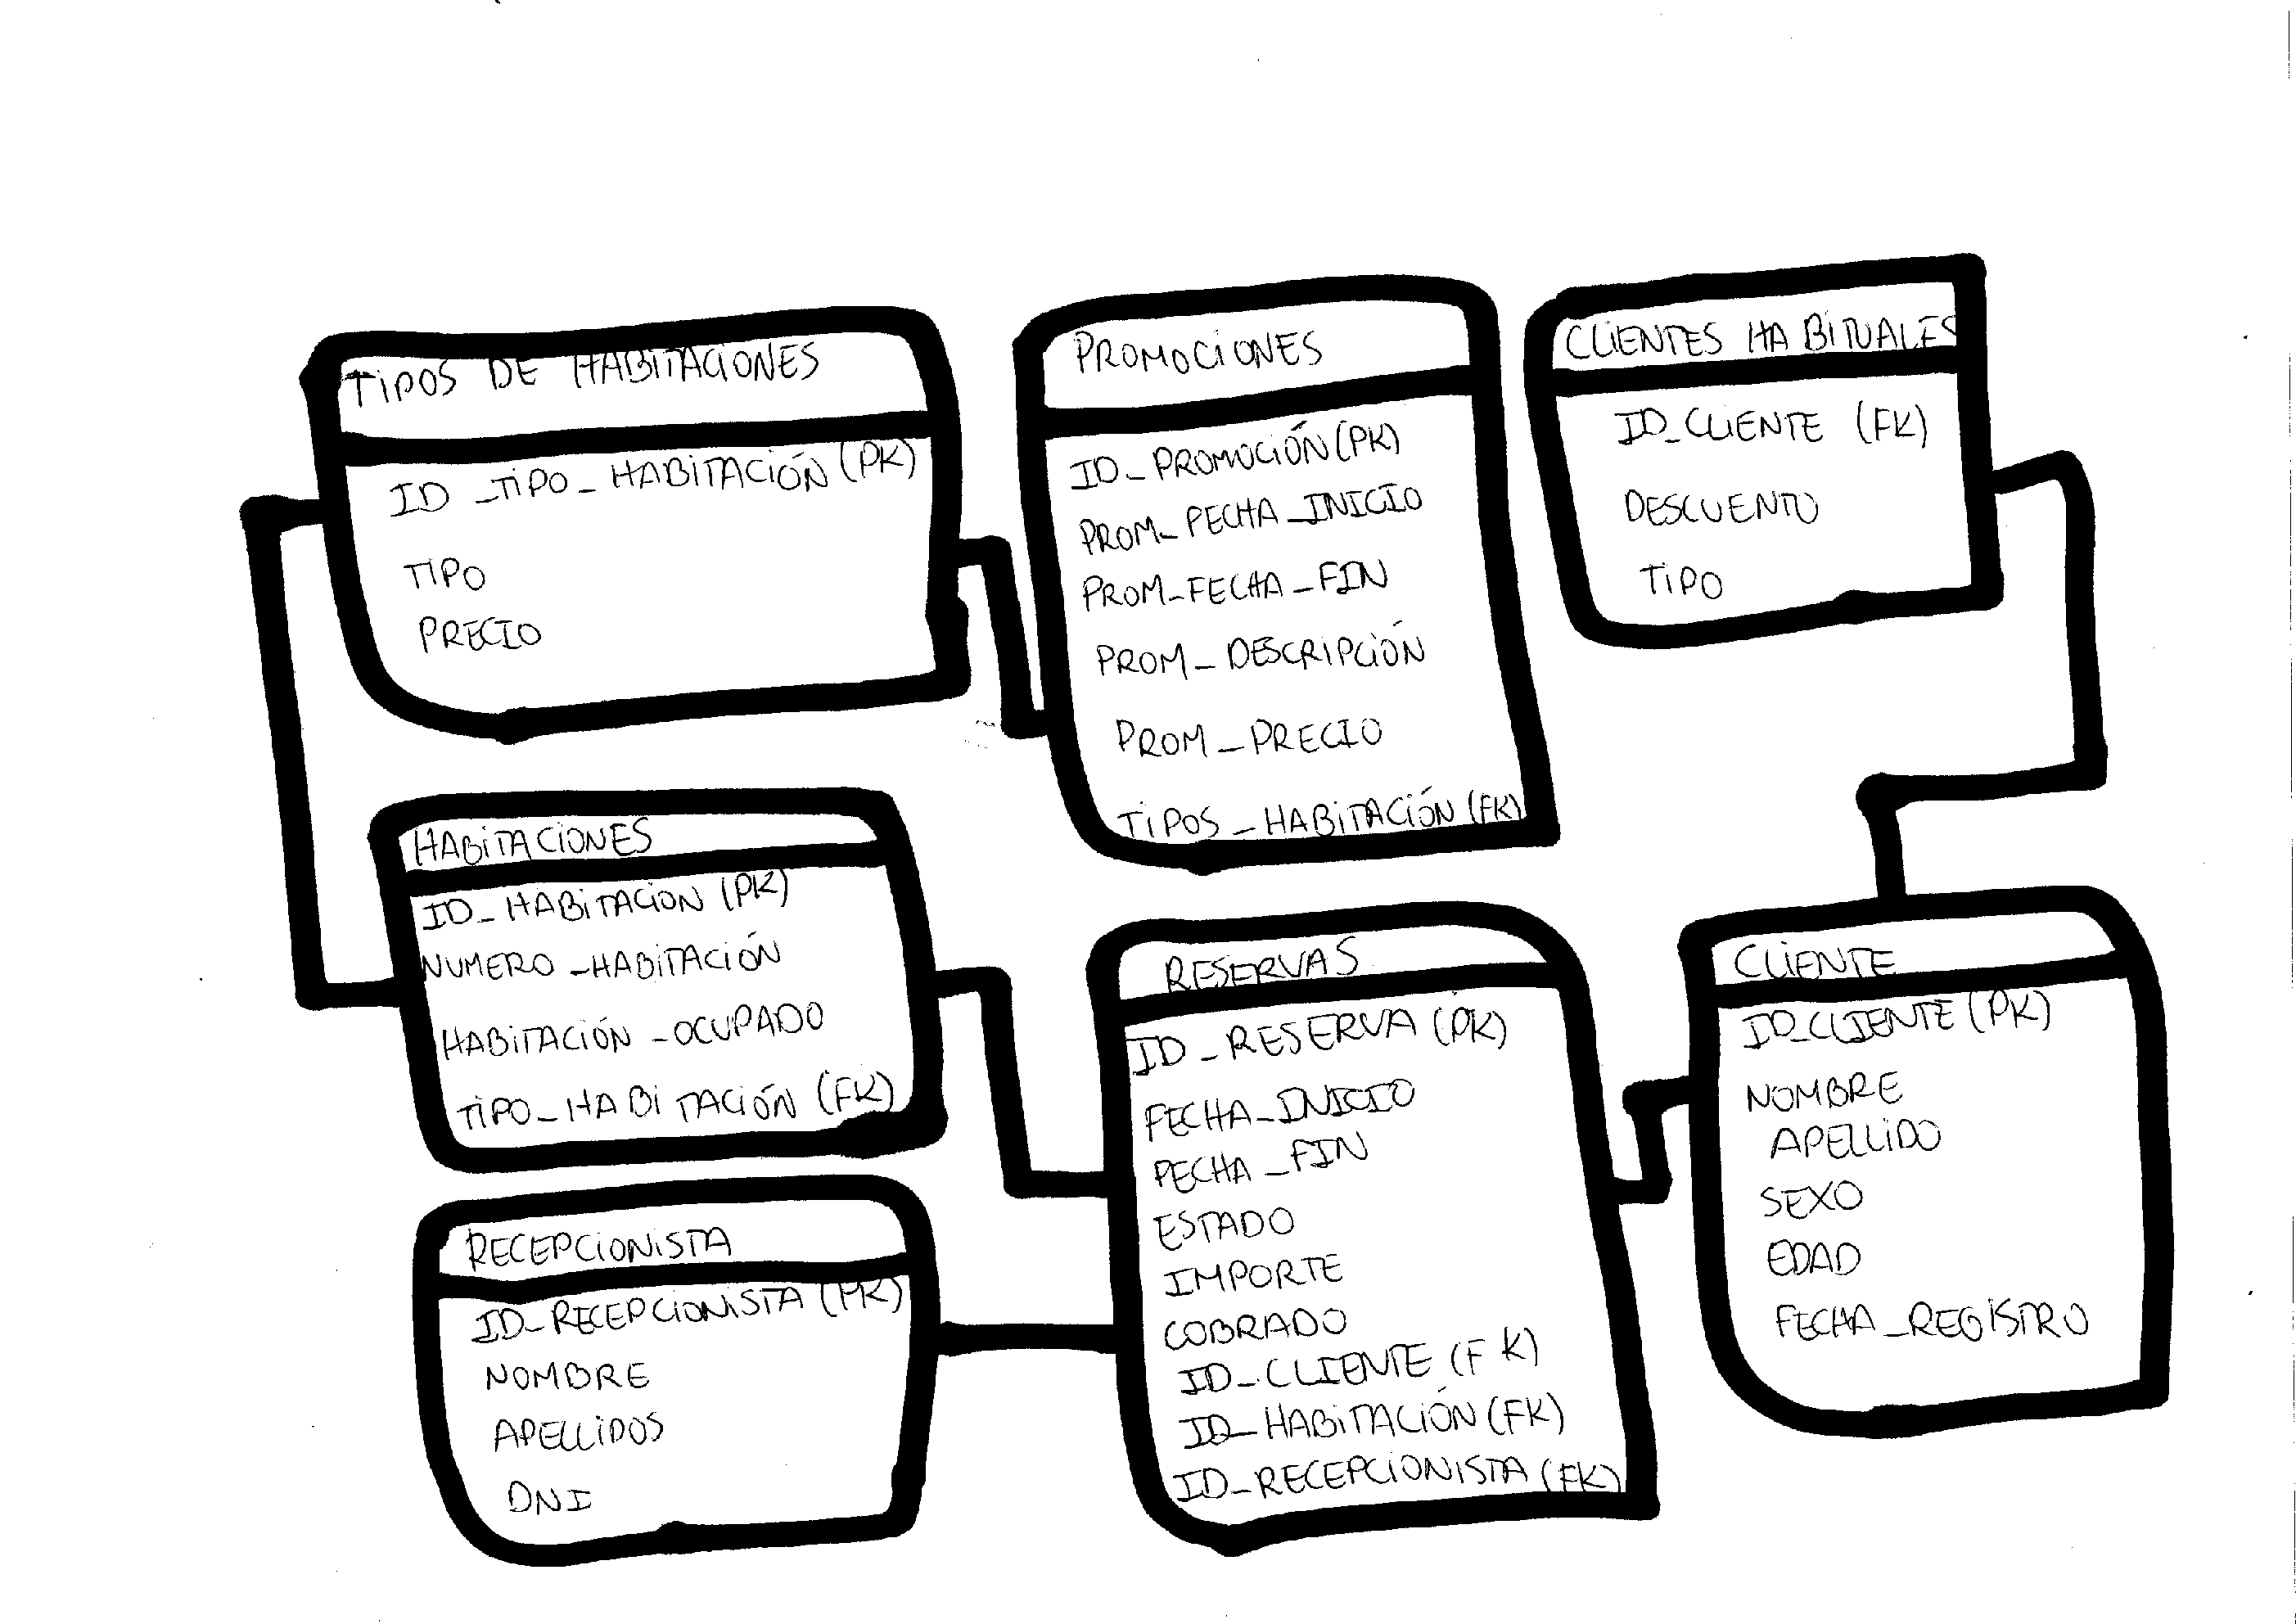 TIPOS DE HABITACIONES
ID_TIPO_HABITACIÓN (PK)
TIPO
PRECIO
PROMOCIONES
ID_PROMOCIÓN (PK)
PROM_FECHA_INICIO
PROM_FECHA_FIN
PROM_DESCRIPCIÓN
PROM_PRECIO
TIPOS_HABITACIÓN (FK)
CLIENTES HABITUALES
ID_CLIENTE (FK)
DESCUENTO
TIPO
HABITACIONES
ID_HABITACION (PK)
NUMERO_HABITACIÓN
HABITACIÓN_OCUPADO
TIPO_HABITACIÓN (FK)
RESERVAS
ID_RESERVA (PK)
FECHA_INICIO
FECHA_FIN
ESTADO
IMPORTE
COBRADO
ID_CLIENTE (FK)
ID_HABITACIÓN (FK)
ID_RECEPCIONISTA (FK)
CLIENTE
ID_CLIENTE (PK)
NOMBRE
APELLIDO
SEXO
EDAD
FECHA_REGISTRO
RECEPCIONISTA
ID_RECEPCIONISTA (PK)
NOMBRE
APELLIDOS
DNI